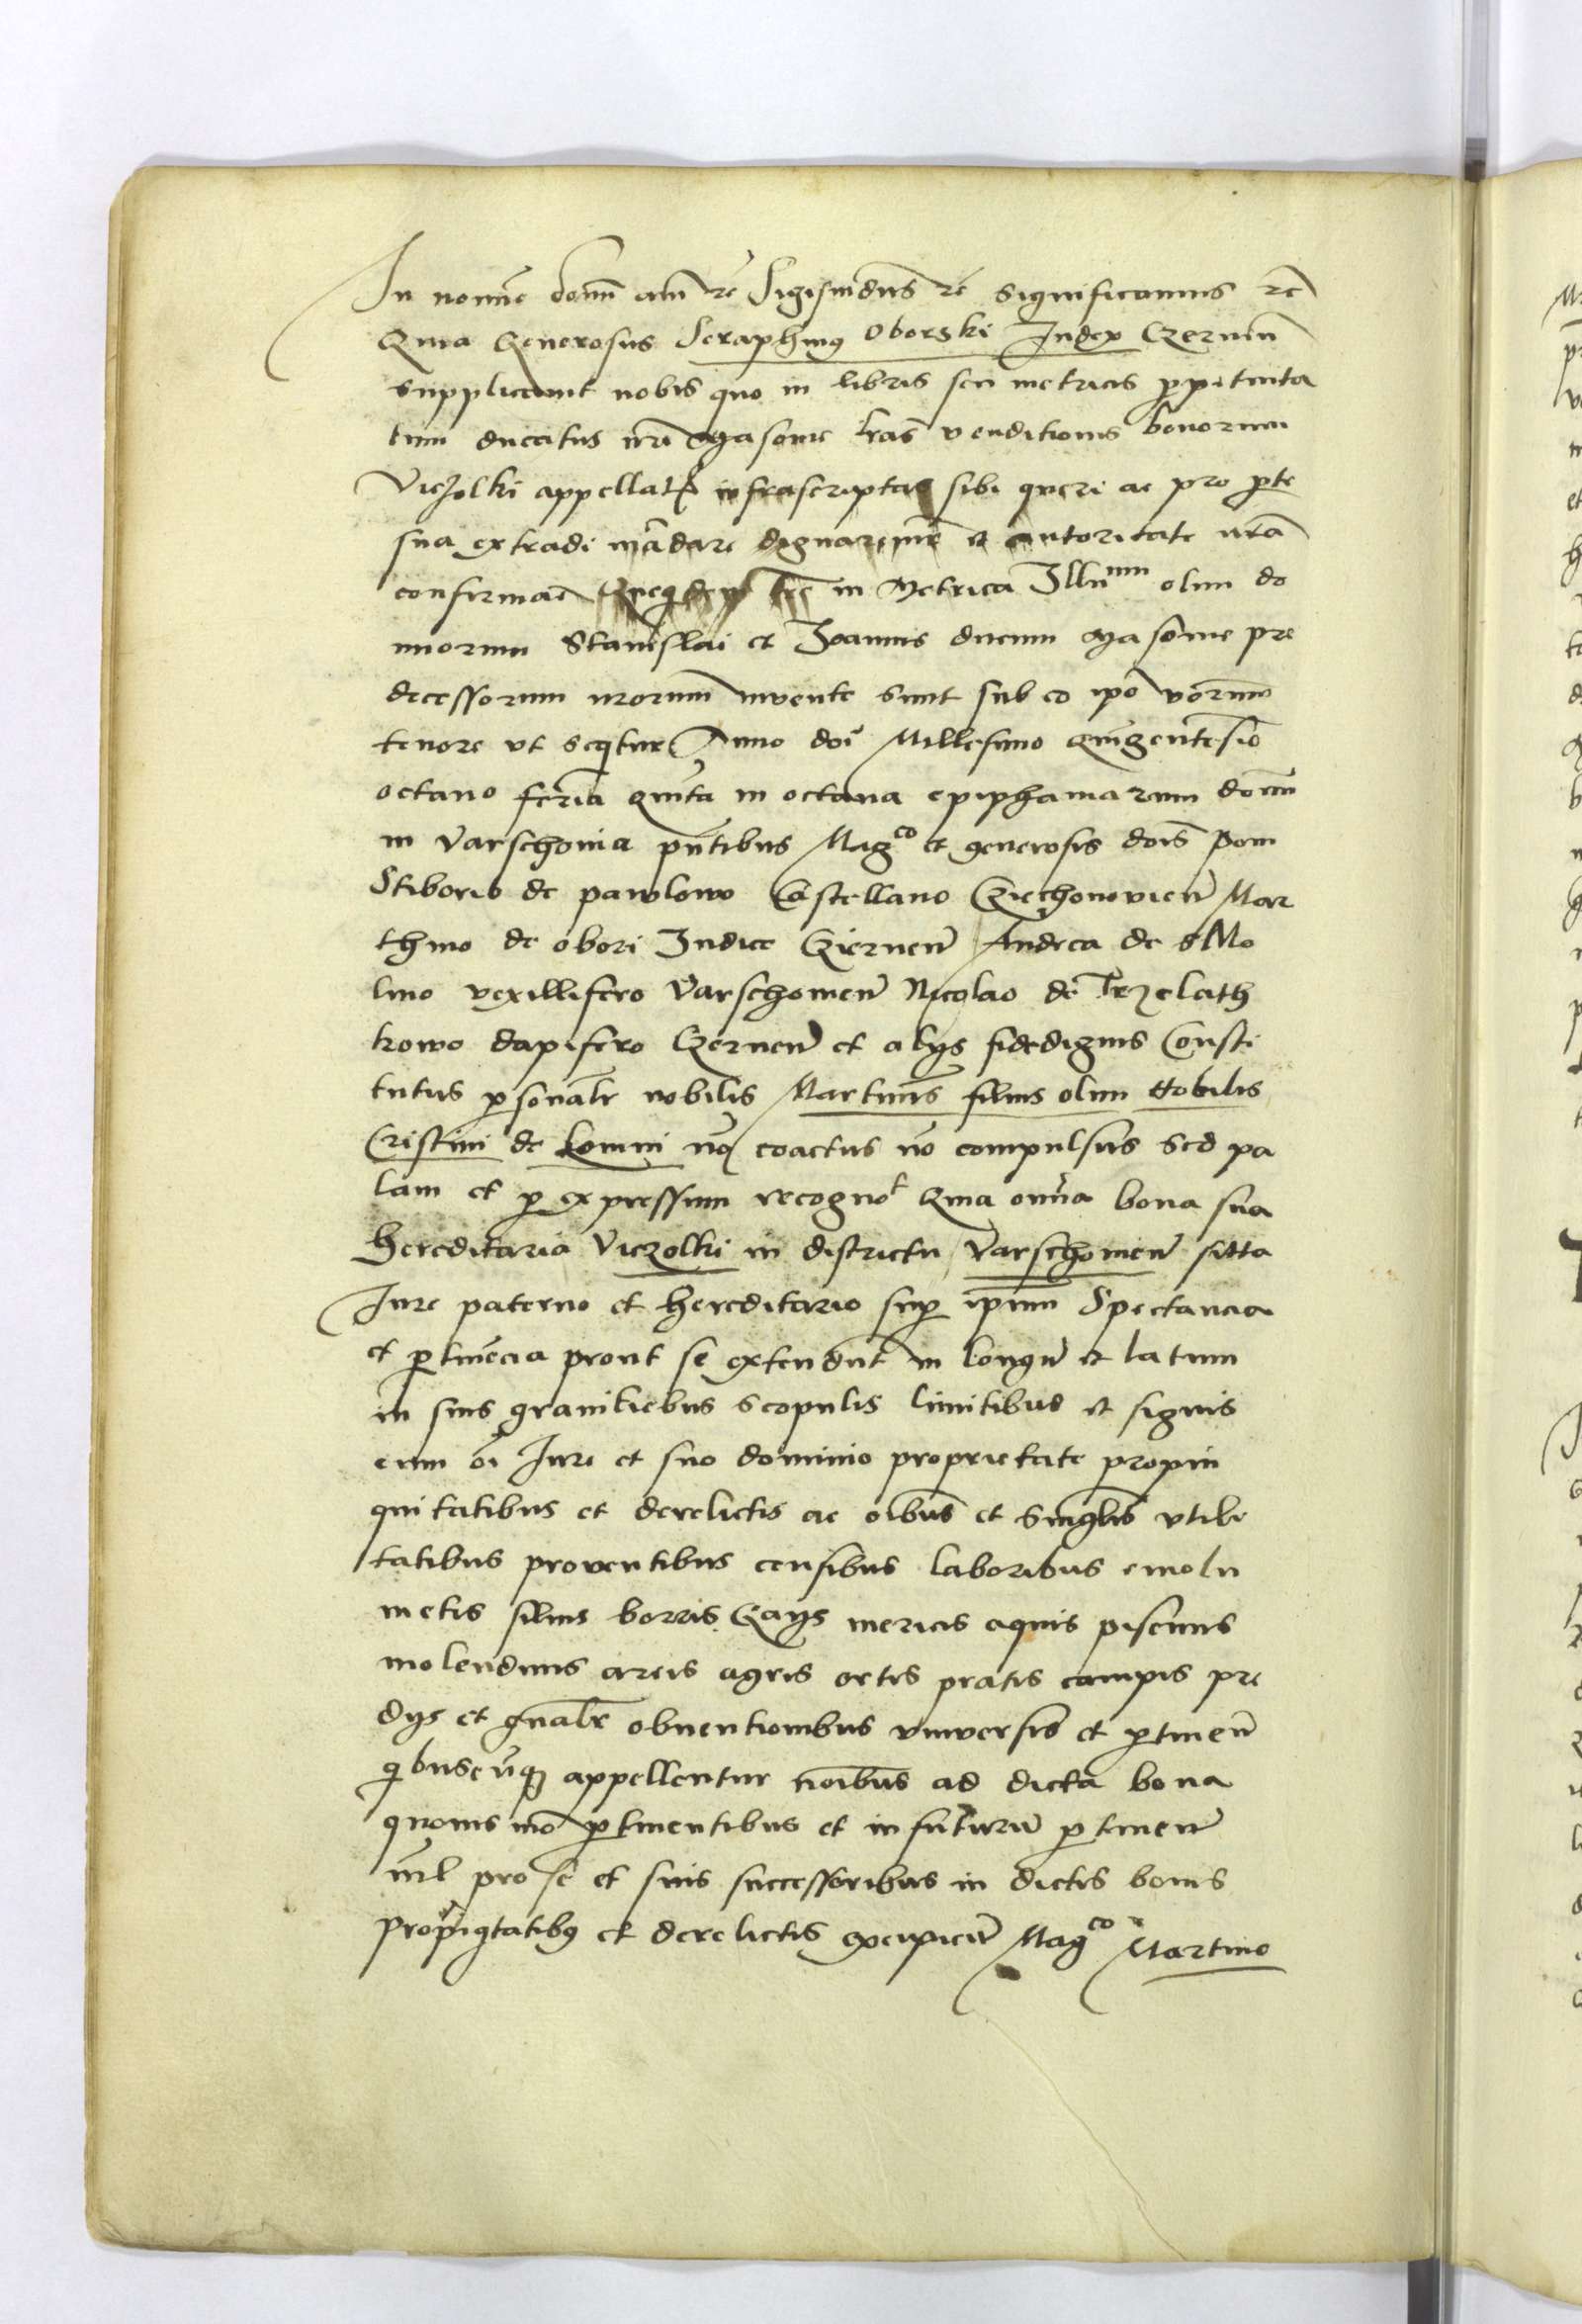 In nomine domini amen rc Sigismūdus rc significamus rc
Quia Generosus Seraphinus Oborski Judex Czernen̄
supplicavit nobis quo in libris seu metricis perpetuita
tum ducatus nrī Masovie lrās venditionis bonorum
Viczolki appellatꝝ infrascriptas sibi queri ac pro pte
sua extradi mādare dignaremur et autoritate nrā
confirmaē Quequidem lrē in Metrica Illu^mm olim do
minorum Stanislai et Joannis ducum Masovie pre
decessorum nrorum invente sunt sub eo ipō verborum
tenore ut seqitur Anno doī Millesimo quingentesīo
octavo feria quīta in octava epiphaniarum domī
in Varschovia pn̄tibus Mag^co et generosis doīs
Stiborio de pawlowo Castellano Cziechonovien̄ Mar
thino de obori Judice Cziernen̄ Andrea de sMo
lino vexillifero Varschovien̄ Nicolao de Trzelath
kowo dapifero Czernen̄ et alys fidedignis Consti
tutus psonalr̄ nobilis Martinus filius olim Nobilis
Cristini de Lomni nō coactus nō compulsus sed pa
lam et p expressum recogno^t Quia omīa bona sua
hereditaria Viczolki in districtu Varschovien̄ sitta
Jure paterno et hereditario sup ipsum Spectancia
et ptinēcia prout se extendūt in longū et latum
in suis granitiebus scopulis limitibus et signis
cum oī Jure et suo dominio proprietate propin
quitatibus et derelictis ac oībus et singlīs utili
tatibus proventibus censibus laboribus emolu
mētis silvis borris Gays mericis aquis piscinis
molendinis areis agris ortis pratis campis pre
dys et gnālr obventionibus universis et ptinen̄
qibuscūqꝫ appellentur noībus ad dicta bona
quovis mō ptinentibus et in futurū ptinen̄
nīl pro se et suis successoribus in dictis bonis
propīqitatibꝰ et derelictis excipien̄ Mag^co Martino